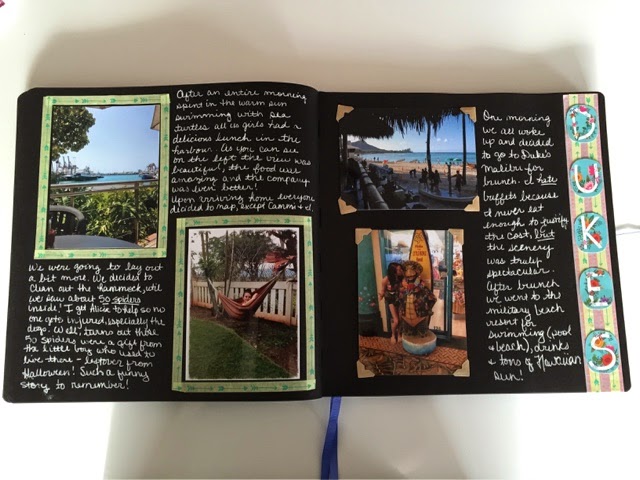 After an entire morning
spent in the warm sun
swimming with sea
turtles all us girls had a
delicious lunch in the
harbour. As you can see
on the left the view was
beautiful, the food was
amazing and the company
was even better!
Upon arriving home everyone
decided to nap, except Cammi + I.
We were going to lay out
a bit more. We decided to
clean out the hammock, until
we saw about 50 spiders
inside! I got Alicia to help so no
one gets injured, especially the
dogs. Well, turns out those
50 spiders were a gift from
the little boy who used to
live there - leftover from
Halloween! Such a funny
story to remember!
One morning
we all woke
up and decided
to go to Duke's
Malibu for
brunch. I hate
buffets because
I never eat
enough to justify
the cost, but
the scenery
was truly
spectacular.
After brunch
we went to the
military beach
resort for
swimming (pool
& beach), drinks
& tons of Hawaiian
sun!
D
U
K
E
S